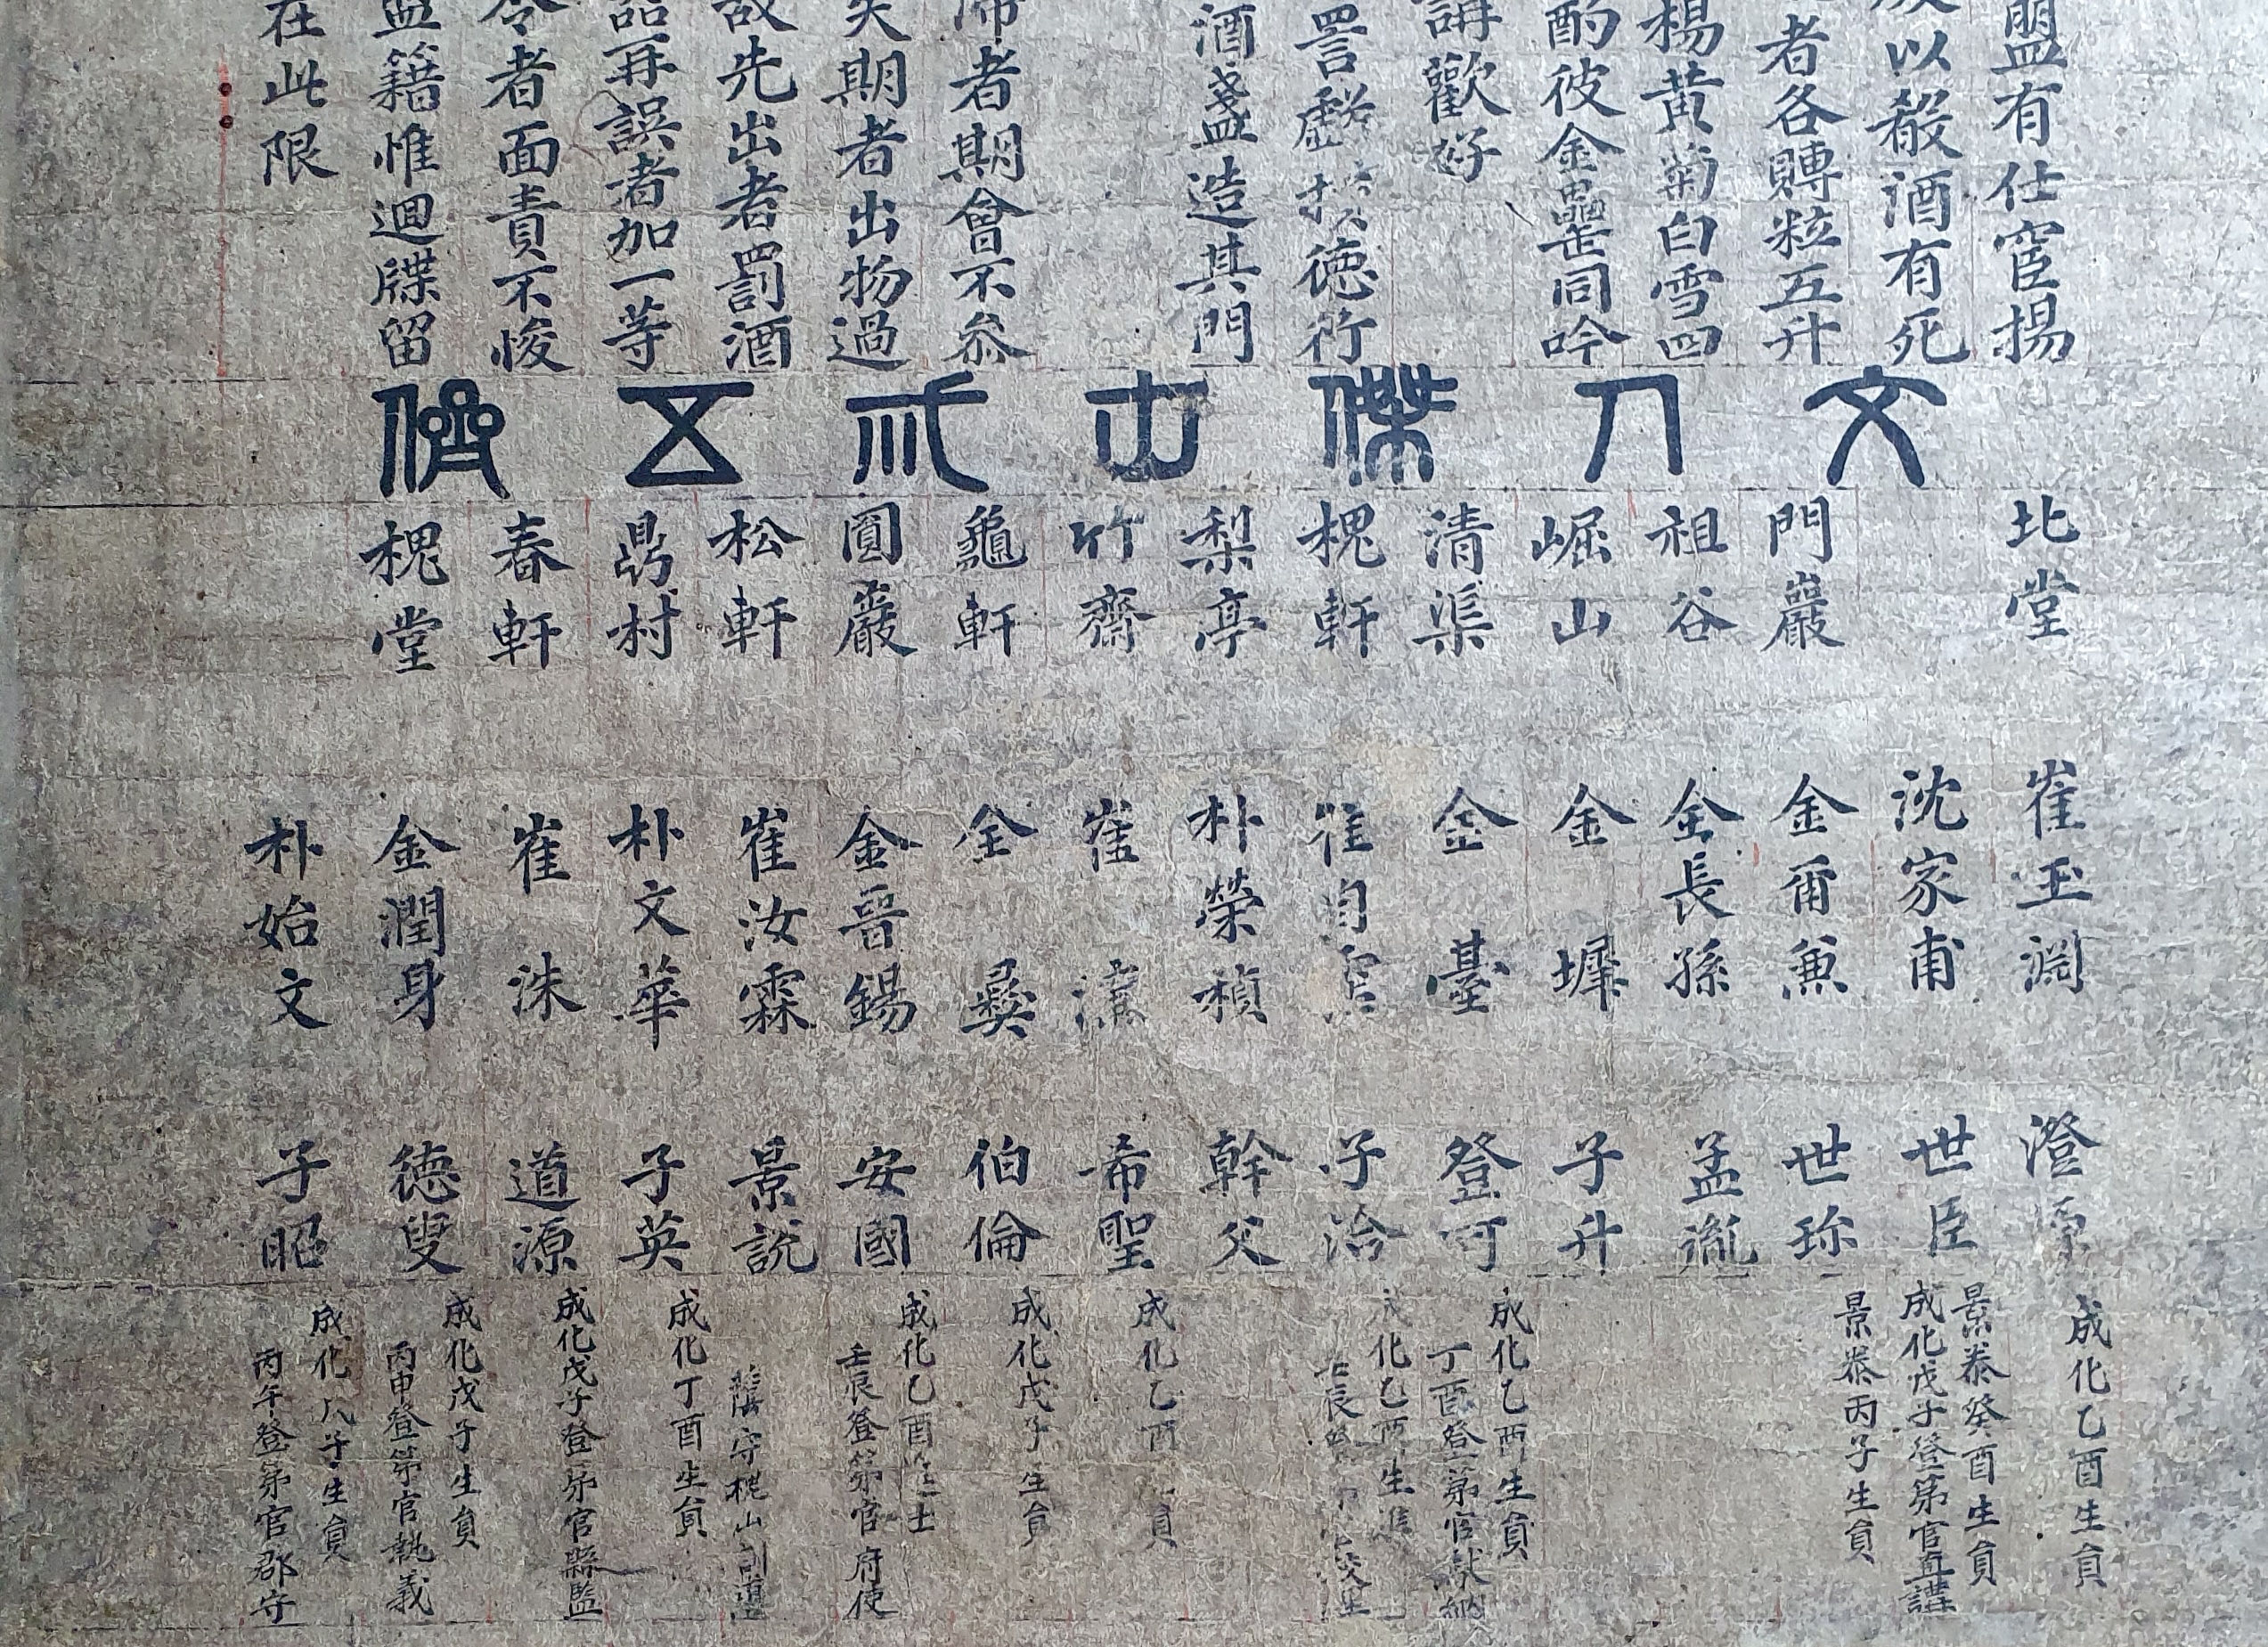 盟有仕宦揚
以殽酒有死
者各賻粒五升
楊黄菊白雪四
酌彼金罍同吟
講歡好
詈 德行
酒盞造其門
者期會不參
失期者出物過
故先出者罰酒
再誤者加一等
令者面責不悛
籍惟迴牒留
在此限
文 傑 五 儕
北堂
門巖
祖谷
崛山
清渠
槐軒
梨亭
竹齋
龜軒
圓巖
松軒
鼎村
春軒
槐堂
崔玉淵
沈家甫
金爾兼
全長孫
金墀
金臺
崔自
朴榮楨
崔漢
全彛
金晉錫
崔汝霖
朴文華
崔洙
金潤身
朴始文
澄源
世臣
世珎
孟胤
子升
登可
子治
幹父
希聖
伯倫
安國
景說
子英
道源
德叟
子昭
成化乙酉生員
景泰癸酉生員
成化戊子登第官直講
景泰丙子生員
成化乙酉生員
丁酉登第官獻納
成化乙酉生進
壬辰登
成化乙酉 員
成化戊子生員
成化乙酉進士
壬辰登第官府使
蔭守槐山
成化丁酉生員
成化戊子登第官縣監
成化戊子生員
丙申登第官執義
成化戊子生員
丙午登第官郡守